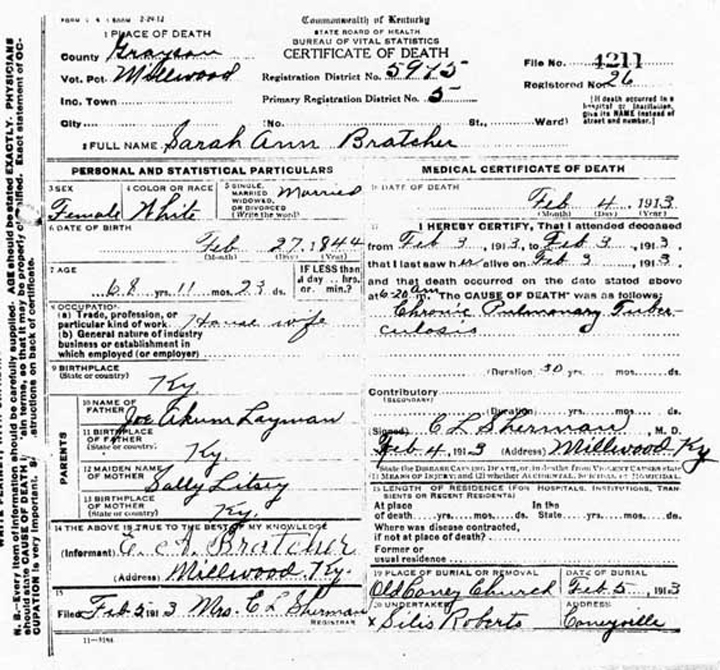 FORM V. S. 1 2-29-12
Commonwealth of Kentucky
STATE BOARD OF HEALTH
BUREAU OF VITAL STATISTICS
CERTIFICATE OF DEATH
1 PLACE OF DEATH
County Grayson
Vot. Pct. Millwood
Inc. Town
City (No. St., Ward)
Registration District No. 5975
Primary Registration District No. 5
File No. 4211
Registered No. 26
[If death occurred in a
hospital or institution,
give its NAME instead of
street and number.]
2 FULL NAME Sarah Ann Bratcher
PERSONAL AND STATISTICAL PARTICULARS
3 SEX
Female
4 COLOR OR RACE
White
5 SINGLE,
MARRIED
WIDOWED,
OR DIVORCED
(Write the word)
Married
6 DATE OF BIRTH
Feb 27, 1844
(Month) (Day) (Year)
7 AGE
68 yrs. 11 mos. 23 ds.
IF LESS than
day hrs.
or min.?
8 OCCUPATION
(a) Trade, profession, or
particular kind of work House wife
(b) General nature of industry
business or establishment in
which employed (or employer)
9 BIRTHPLACE
(State or country)
Ky.
PARENTS
10 NAME OF
FATHER Joe Akum Layman
11 BIRTHPLACE
OF FATHER
(State or country)
Ky.
12 MAIDEN NAME
OF MOTHER Sally Litsey
13 BIRTHPLACE
OF MOTHER
(State or country)
Ky.
14 THE ABOVE IS TRUE TO THE BEST OF MY KNOWLEDGE
(Informant) E. A. Bratcher
(Address) Millwood Ky.
15
Filed Feb 5 1913 Mrs. E L Sherman
REGISTRAR
11-3184
MEDICAL CERTIFICATE OF DEATH
DATE OF DEATH
Feb 4 1913
(Month) (Day) (Year)
I HEREBY CERTIFY, That I attended deceased
from Feb 3, 1913, to Feb 3, 1913,
that I last saw her alive on Feb 3, 1913,
and that death occurred on the date stated above
at 6-20 am. The CAUSE OF DEATH was as follows:
Chronic Pulmonary Tuber-
culosis
(Duration) 30 yrs. mos. ds.
Contributory
(SECONDARY)
(Duration) yrs. mos. ds.
(Signed) E L Sherman, M. D.
Feb 4, 1913 (Address) Millwood Ky
State the DISEASE CAUSING DEATH, or, in deaths from VIOLENT CAUSES state
(1) MEANS OF INJURY; and (2) whether ACCIDENTAL, SUICIDAL or HOMICIDAL.
18 LENGTH OF RESIDENCE (FOR HOSPITALS, INSTITUTIONS, TRAN-
SIENTS OR RECENT RESIDENTS)
At place In the
of death yrs. mos. ds. State yrs. mos. ds.
Where was disease contracted,
if not at place of death?
Former or
usual residence
19 PLACE OF BURIAL OR REMOVAL
Old Caney Church
DATE OF BURIAL
Feb 5, 1913
20 UNDERTAKER
x Silis Roberts
ADDRESS
Caneyville
N. B.—Every item of information should be carefully supplied. AGE should be stated EXACTLY. PHYSICIANS
should state CAUSE OF DEATH in terms, so that it may be properly classified. Exact statement of OC-
CUPATION is very important. structions on back of certificate.